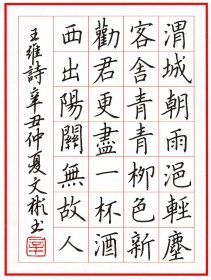 渭城朝雨浥輕塵
客舍青青柳色新
勸君更盡一杯酒
西出陽關無故人
王維詩辛丑仲夏文彬书